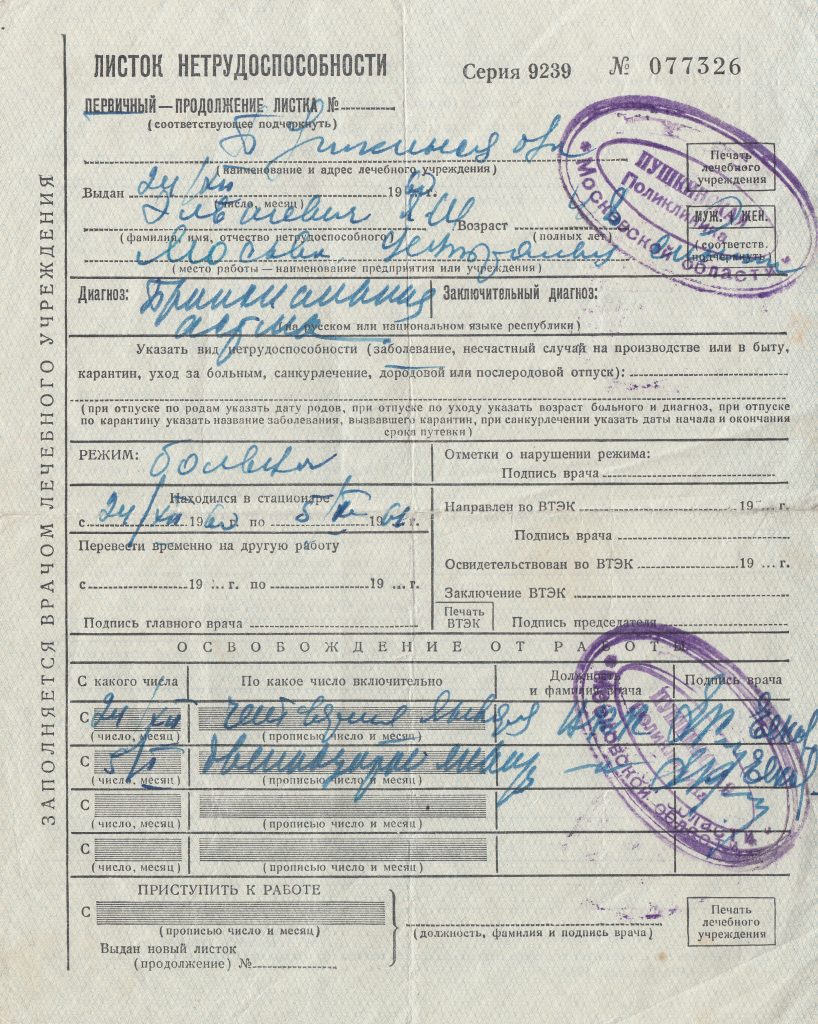 ЗАПОЛНЯЕТСЯ ВРАЧОМ ЛЕЧЕБНОГО УЧРЕЖДЕНИЯ
ЛИСТОК НЕТРУДОСПОСОБНОСТИ
Серия 9239 № 077326
ПЕРВИЧНЫЙ — ПРОДОЛЖЕНИЕ ЛИСТКА №
(соответствующее подчеркнуть)
(наименование и адрес лечебного учреждения)
Печать лечебного учреждения
ПУШКИНСКАЯ Поликлиника Московской области
Выдан 24/XII 19 г.
(число, месяц)
/Возраст
МУЖ. ЖЕН.
(фамилия, имя, отчество нетрудоспособного) (полных лет)
(соответств. подчеркнуть)
Москва
(место работы — наименование предприятия или учреждения)
Диагноз: Бронхиальная Заключительный диагноз:
астма
(на русском или национальном языке республики)
Указать вид нетрудоспособности (заболевание, несчастный случай на производстве или в быту,
карантин, уход за больным, санкурлечение, дородовой или послеродовой отпуск):
(при отпуске по родам указать дату родов, при отпуске по уходу указать возраст больного и диагноз, при отпуске
по карантину указать название заболевания, вызвавшего карантин, при санкурлечении указать даты начала и окончания
срока путевки)
РЕЖИМ: Отметки о нарушении режима:
Подпись врача
Находился в стационаре
с 24/XII 1960 г. по 5/I 1961 г.
Направлен во ВТЭК 19 г.
Подпись врача
Перевести временно на другую работу
Освидетельствован во ВТЭК 19 г.
с 19 г. по 19 г.
Заключение ВТЭК
Печать ВТЭК
Подпись главного врача Подпись председателя
ОСВОБОЖДЕНИЕ ОТ РАБОТЫ
С какого числа По какое число включительно Должность и фамилия врача Подпись врача
С 24/XII января
(число, месяц) (прописью число и месяц)
С 5/I двенадцатое
(число, месяц) (прописью число и месяц)
С
(число, месяц) (прописью число и месяц)
С
(число, месяц) (прописью число и месяц)
ПУШКИНСКАЯ Поликлиника Московской области
ПРИСТУПИТЬ К РАБОТЕ
С
(прописью число и месяц)
(должность, фамилия и подпись врача)
Печать лечебного учреждения
Выдан новый листок
(продолжение) №